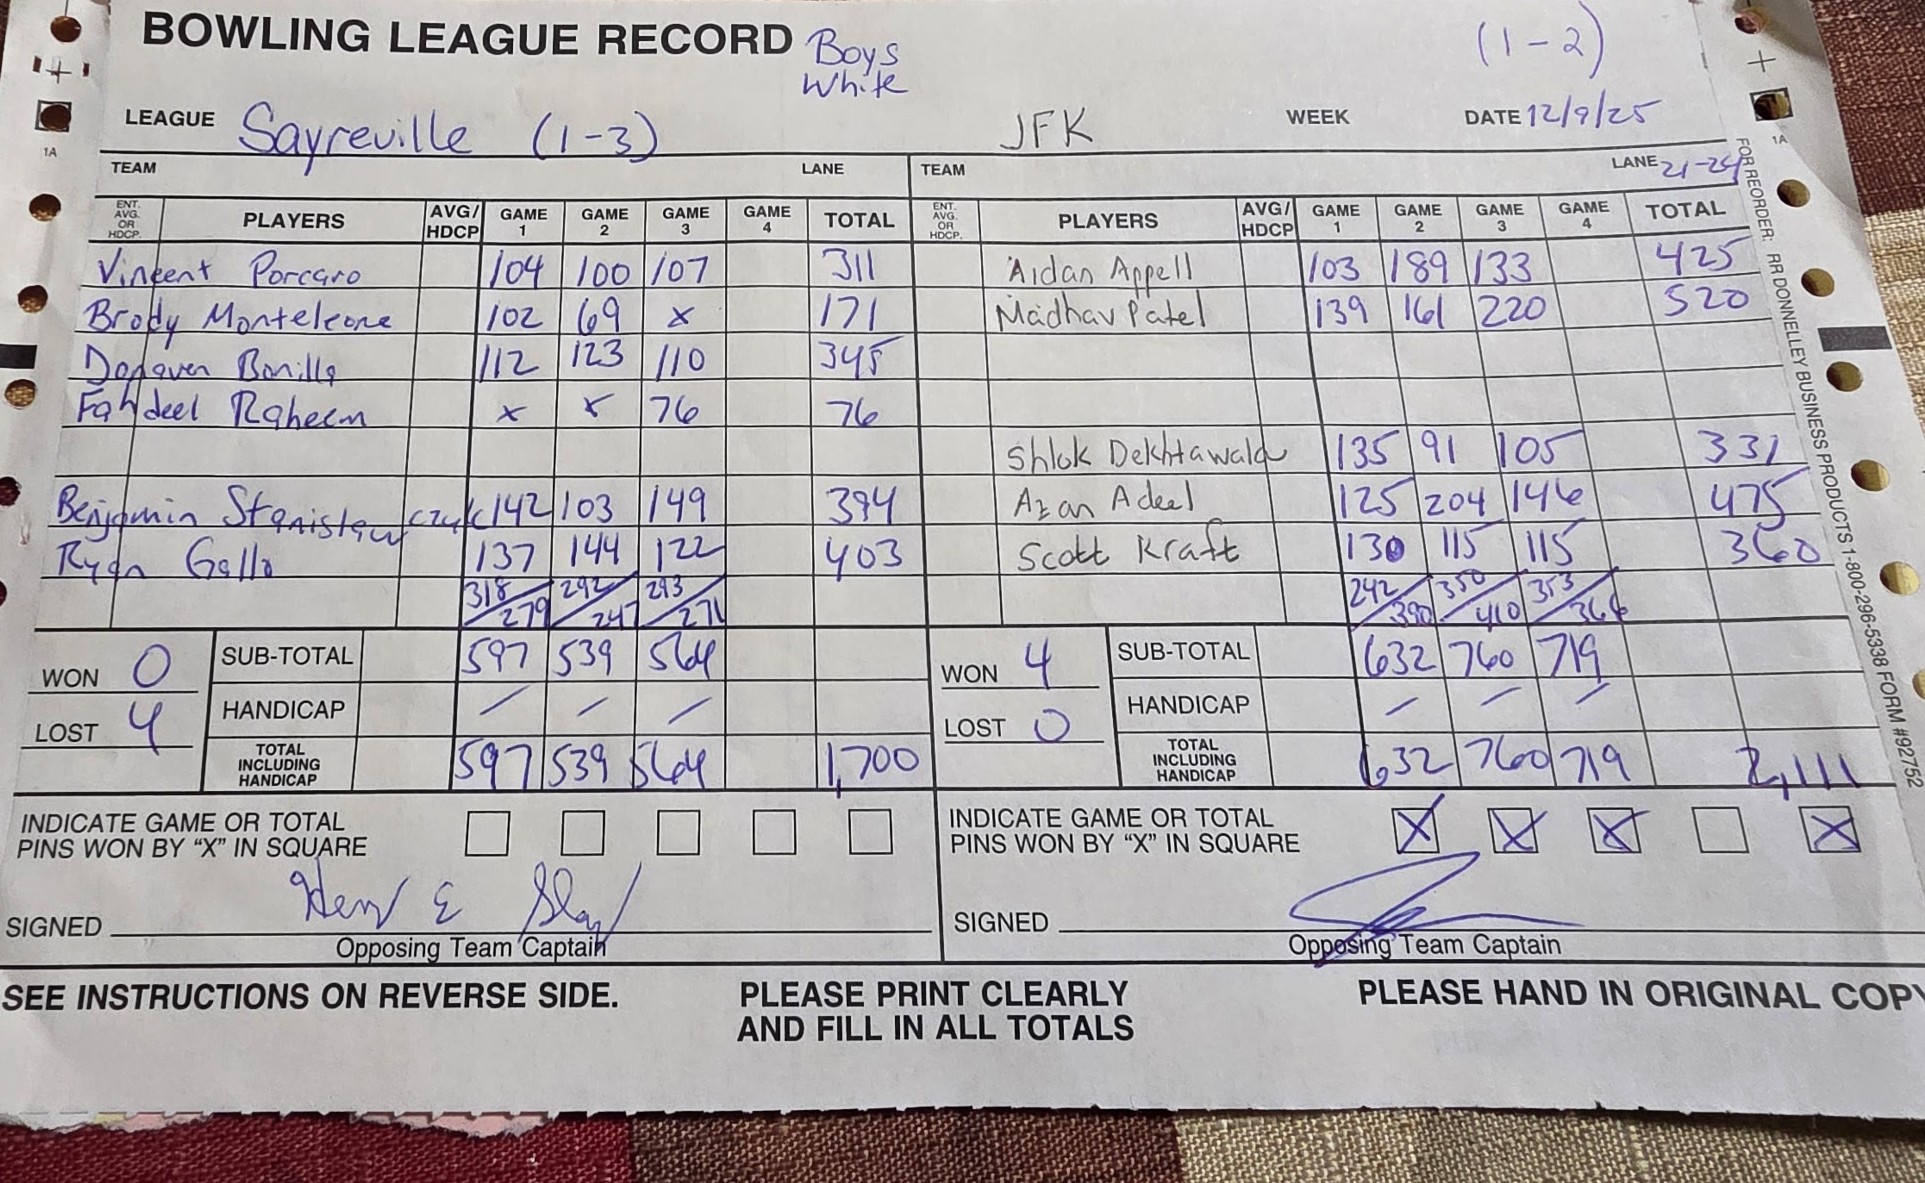 BOWLING LEAGUE RECORD Boys (1-2)
White
LEAGUE Sayreville (1-3) JFK WEEK DATE 12/9/25
1A 1A
TEAM LANE TEAM LANE 21-24
ENT. AVG. OR HDCP. PLAYERS AVG/HDCP GAME 1 GAME 2 GAME 3 GAME 4 TOTAL ENT. AVG. OR HDCP. PLAYERS AVG/HDCP GAME 1 GAME 2 GAME 3 GAME 4 TOTAL
Vincent Porcaro 104 100 107 311 Aidan Appell 103 189 133 425
Brody Monteleone 102 69 x 171 Madhav Patel 139 161 220 520
Donaven Bonilla 112 123 110 345
Fahdeel Raheem x x 76 76
Shlok Dekhtawala 135 91 105 331
Benjamin Stanislawczyk 142 103 149 394 Azan Adeel 125 204 146 475
Ryan Gallo 137 144 122 403 Scott Kraft 130 115 115 360
318/279 292/247 293/271 242/390 350/410 353/366
WON 0 SUB-TOTAL 597 539 564 WON 4 SUB-TOTAL 632 760 719
LOST 4 HANDICAP / / / LOST 0 HANDICAP / / /
TOTAL INCLUDING HANDICAP 597 539 564 1,700 TOTAL INCLUDING HANDICAP 632 760 719 2,111
INDICATE GAME OR TOTAL INDICATE GAME OR TOTAL
PINS WON BY "X" IN SQUARE PINS WON BY "X" IN SQUARE X X X X
SIGNED SIGNED
Opposing Team Captain Opposing Team Captain
SEE INSTRUCTIONS ON REVERSE SIDE. PLEASE PRINT CLEARLY PLEASE HAND IN ORIGINAL COPY
AND FILL IN ALL TOTALS
FOR REORDER: RR DONNELLEY BUSINESS PRODUCTS 1-800-296-5338 FORM #92752